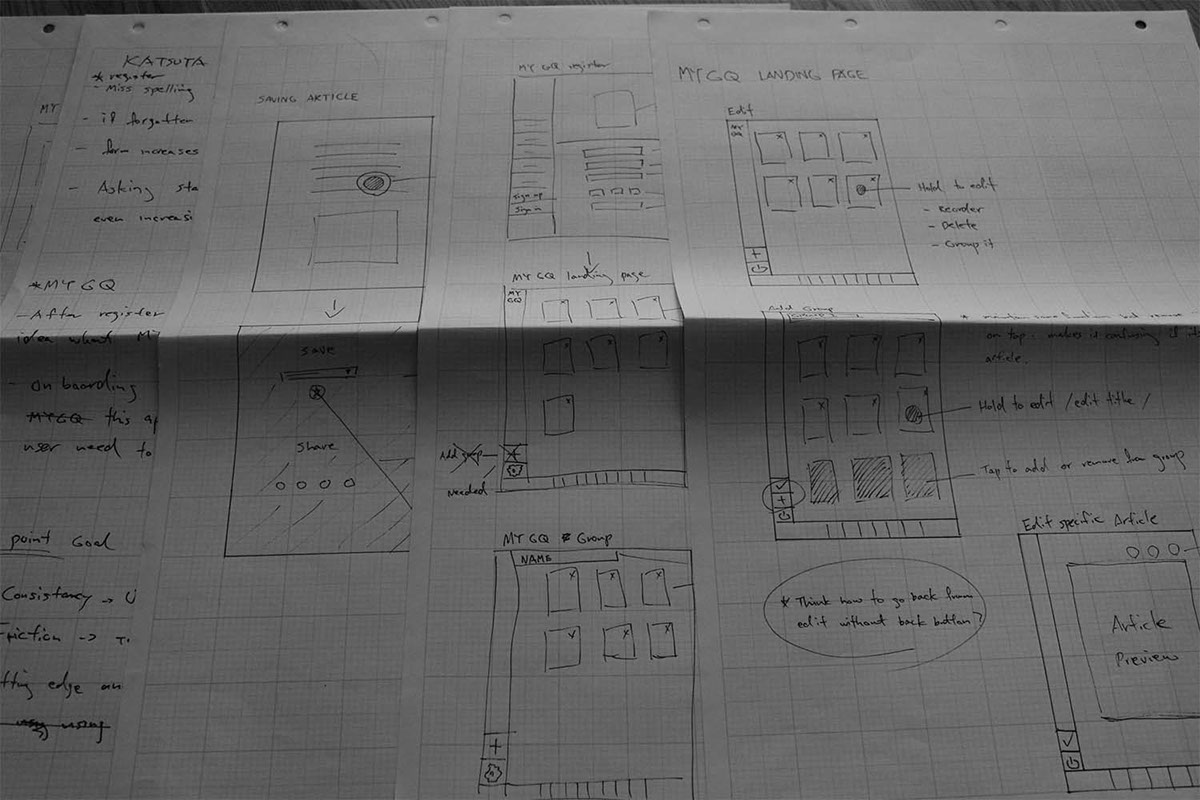 MY
KATSUTA
* register
- Miss spelling
- if forgotten
- form increases
- Asking
even
* MY GQ
- After register
idea what
- On boarding
MY GQ this
user need to
point Goal
Consistency →
edge
using
SAVING ARTICLE
save
share
MY GQ register
Sign up
Sign in
MY GQ landing page
MY
GQ
Add group
Needed
MY GQ Group
NAME
MY GQ LANDING PAGE
Edit
MY
GQ
Hold to edit
- Reorder
- Delete
- Group it
Add Group
on top. makes it confusing if
article.
Hold to edit / edit title /
Tap to add or remove from group
* Think how to go back from
edit without back button?
Edit specific Article
Article
Preview